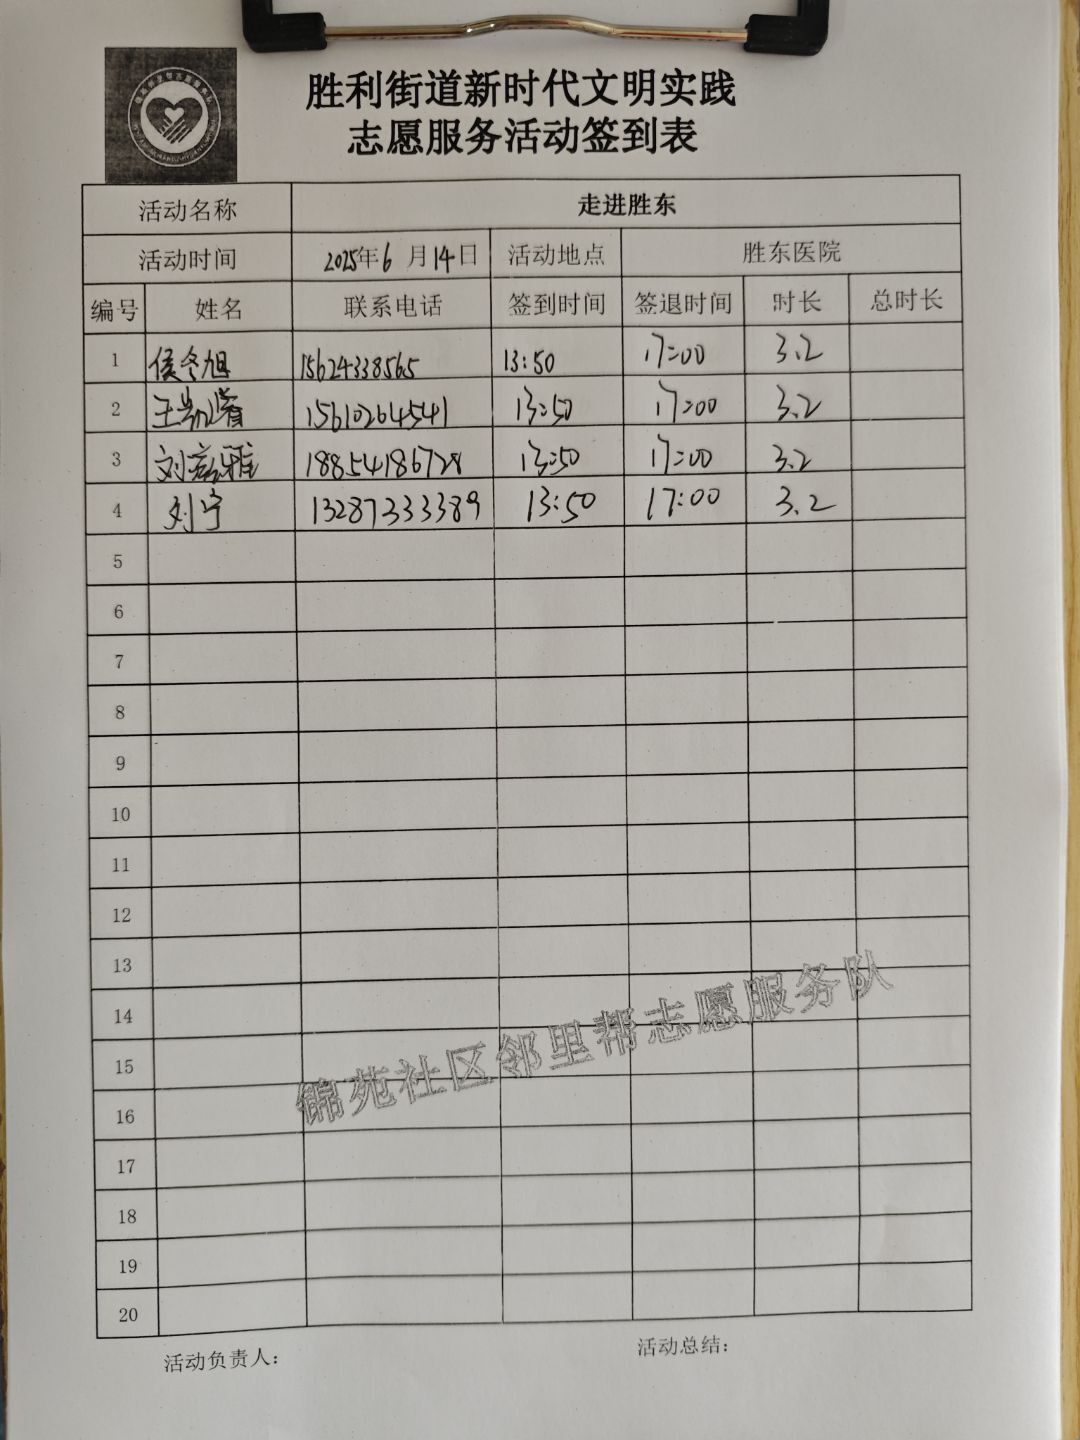 胜利街道新时代文明实践
志愿服务活动签到表
活动名称 走进胜东
活动时间 2025年6月14日 活动地点 胜东医院
编号 姓名 联系电话 签到时间 签退时间 时长 总时长
1 侯冬旭 15624338565 13:50 17:00 3.2
2 王 15610264541 13:50 17:00 3.2
3 刘 雅 18854186728 13:50 17:00 3.2
4 刘宁 13287333389 13:50 17:00 3.2
5
6
7
8
9
10
11
12
13
14
15
16
17
18
19
20
锦苑社区邻里帮志愿服务队
活动负责人: 活动总结: